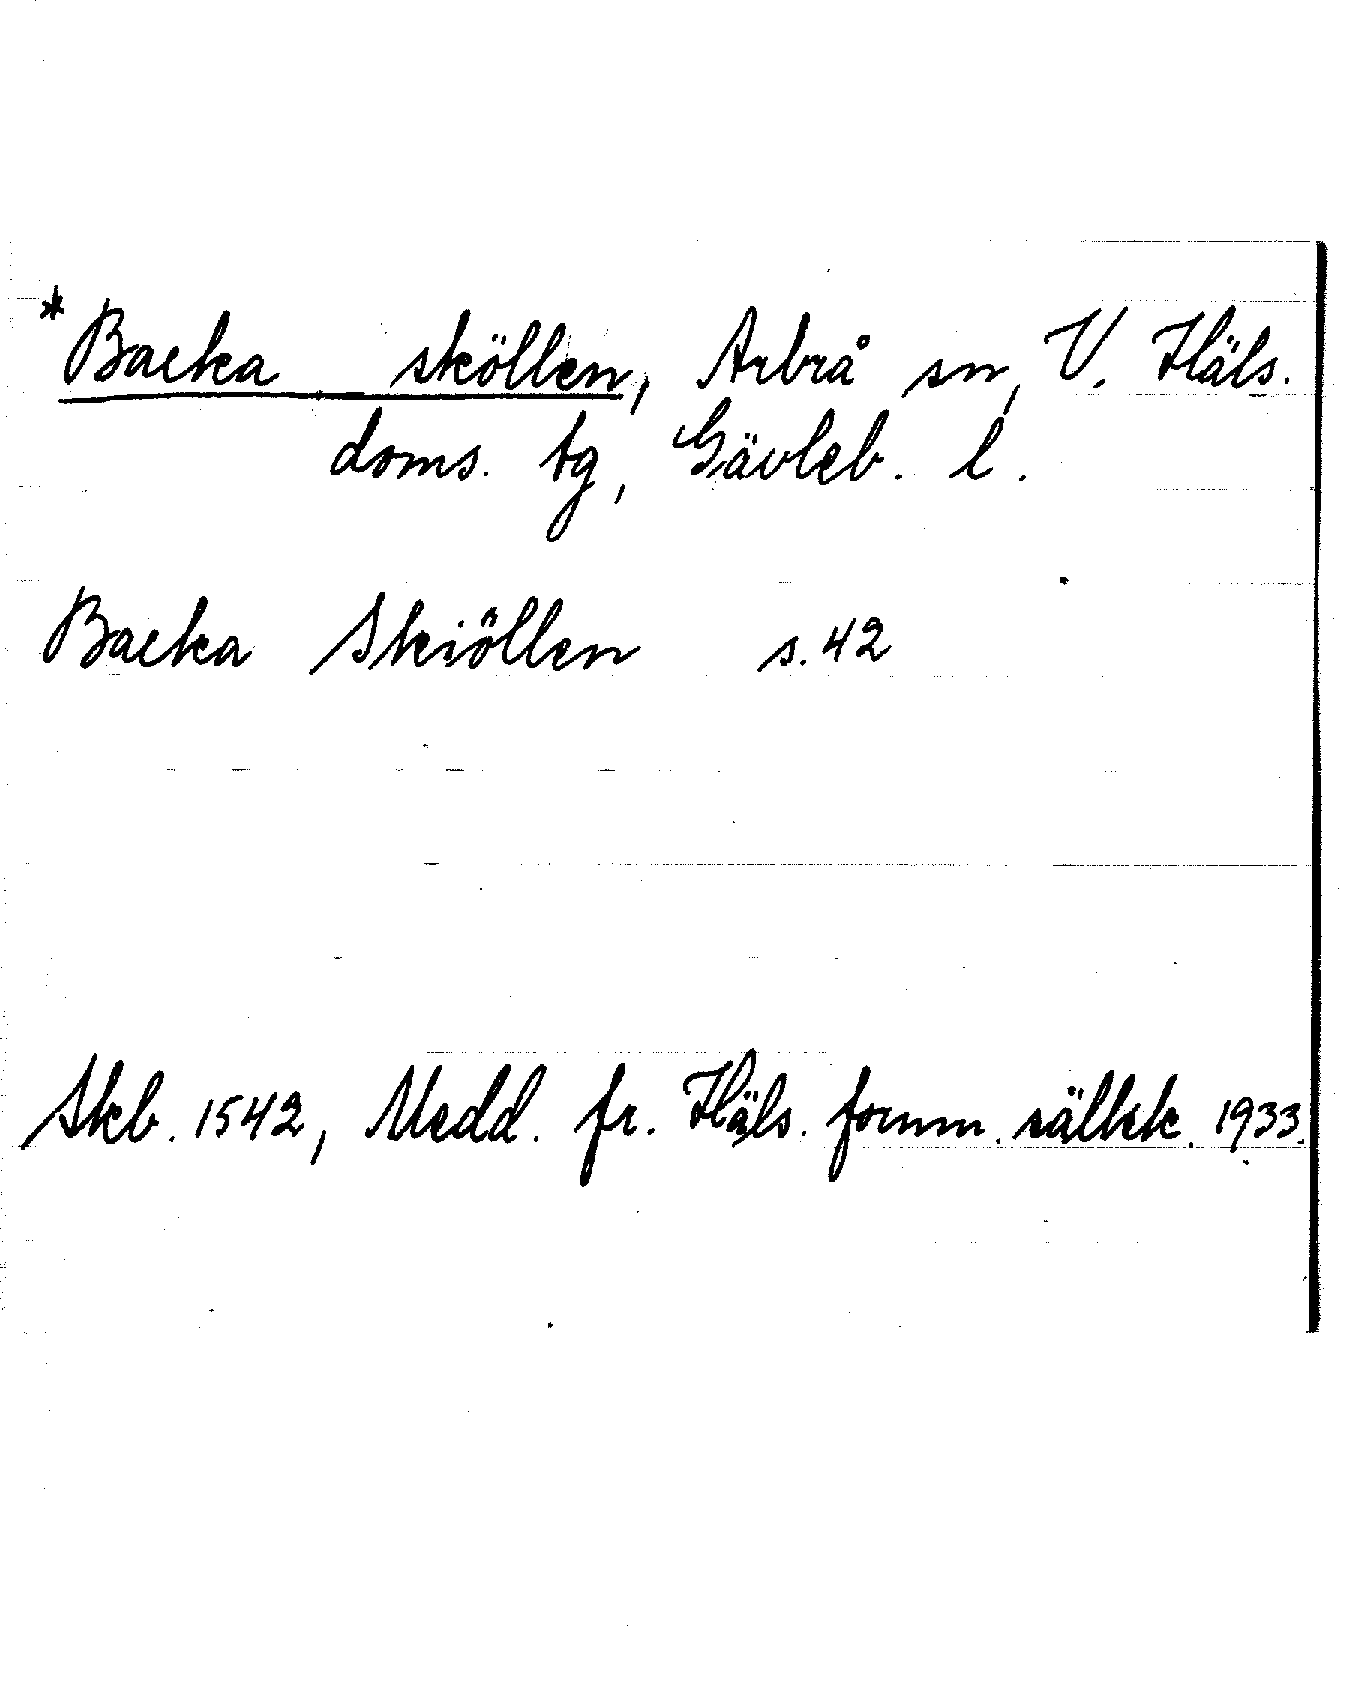 *Backa sköllen, Arbrå sn, V. Häls.
doms. tg, Gävleb. l.
Backa Skiöllen s. 42
Skb. 1542, Medd. fr. Häls. fornm. sällsk. 1933.